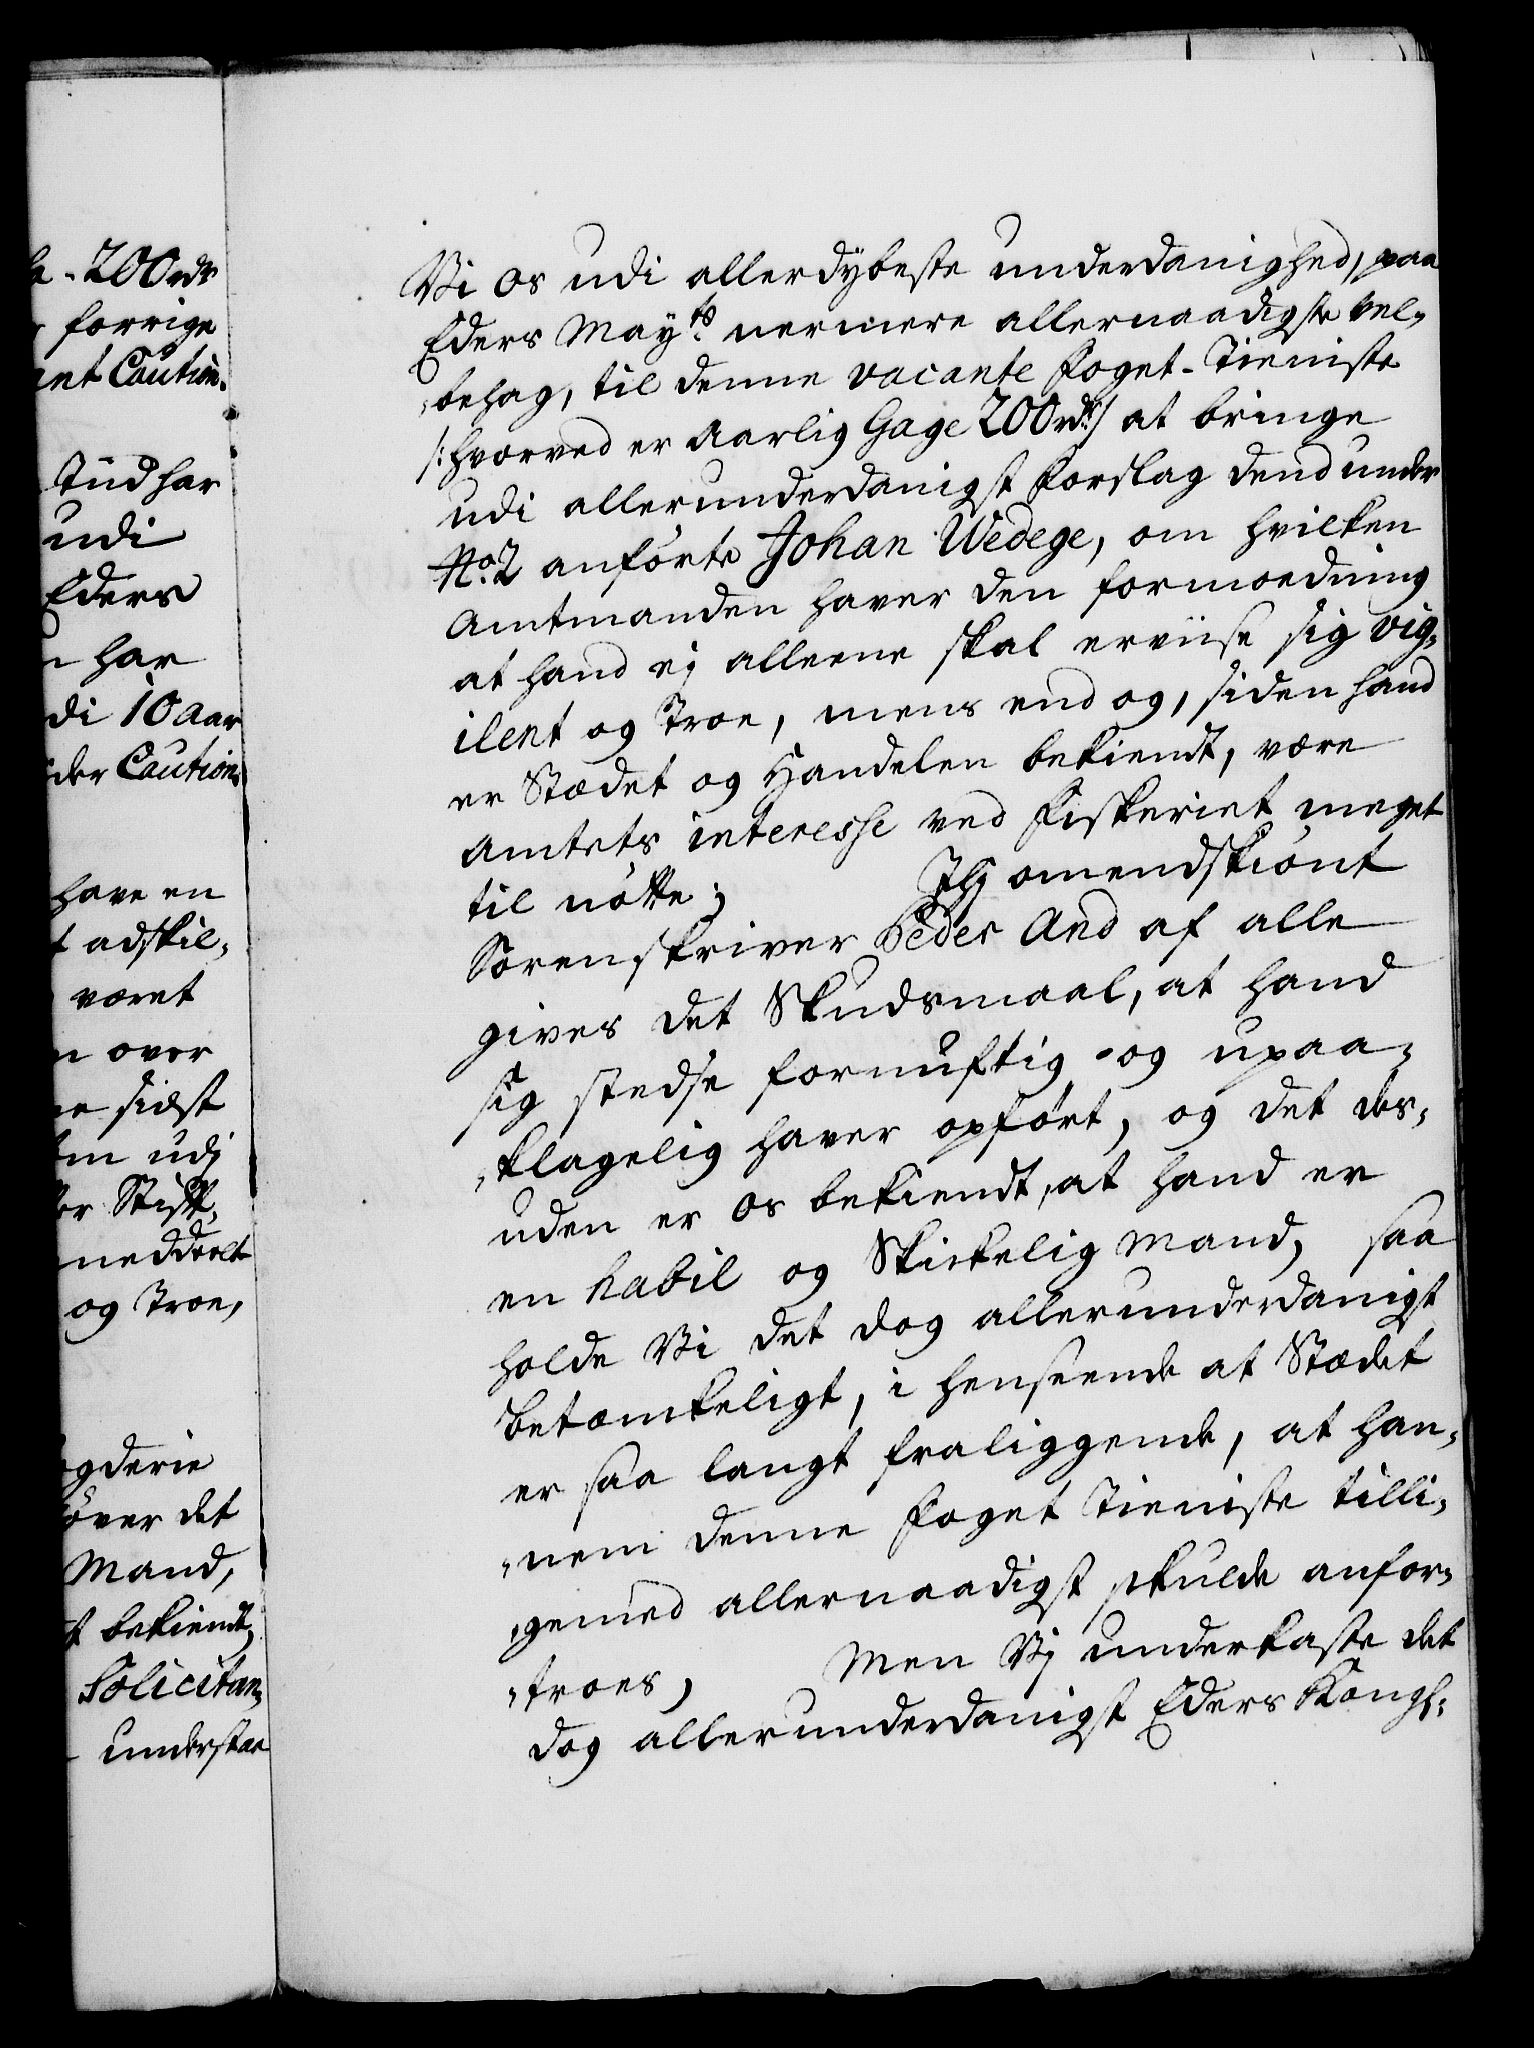 200rdr
forrige
Caution.
Tiid har
udi
Eders
har
di 10 aar
der Caution
have en
adskil,
været
over
sidst
udj
Stift,
meddeelt
og Troe,
det
Mand,
bekiendt,
Solicitan,
understaae
Vi os udi allerdybeste underdanighed, paa
Eders Mayts nermere allernaadigste vel,
behag, til denne vacante foget-Tieniste
/:hvorved er Aarlig Gage 200rdr:/ at bringe
udi allerunderdanigst forslag dend under
No. 2 anførte Johan Wedege, om hvilken
Amtmanden haver den formoedning
at hand ej alleene skal erviise sig vig,
ilent og Troe, mens end og, siden hand
er Stædet og Handelen bekiendt, være
Amtets interesse ved fiskeriet meget
til nøtte; Thj omendskiønt
Sorenskriver Peder And af alle
gives det Skudsmaal, at hand
sig stedse fornuftig og upaa,
klagelig haver opført, og det des,
uden er os bekiendt, at hand er
en habil og Skikkelig Mand, saa
holde Vi det dog allerunderdanigst
betænkeligt, i henseende at Stædet
er saa langt fraliggende, at han,
nem denne foget Tieniste tilli,
gemed allernaadigst skulde anfor,
troes, Men Vj underkaste det
dog allerunderdanigst Eders Kongl: